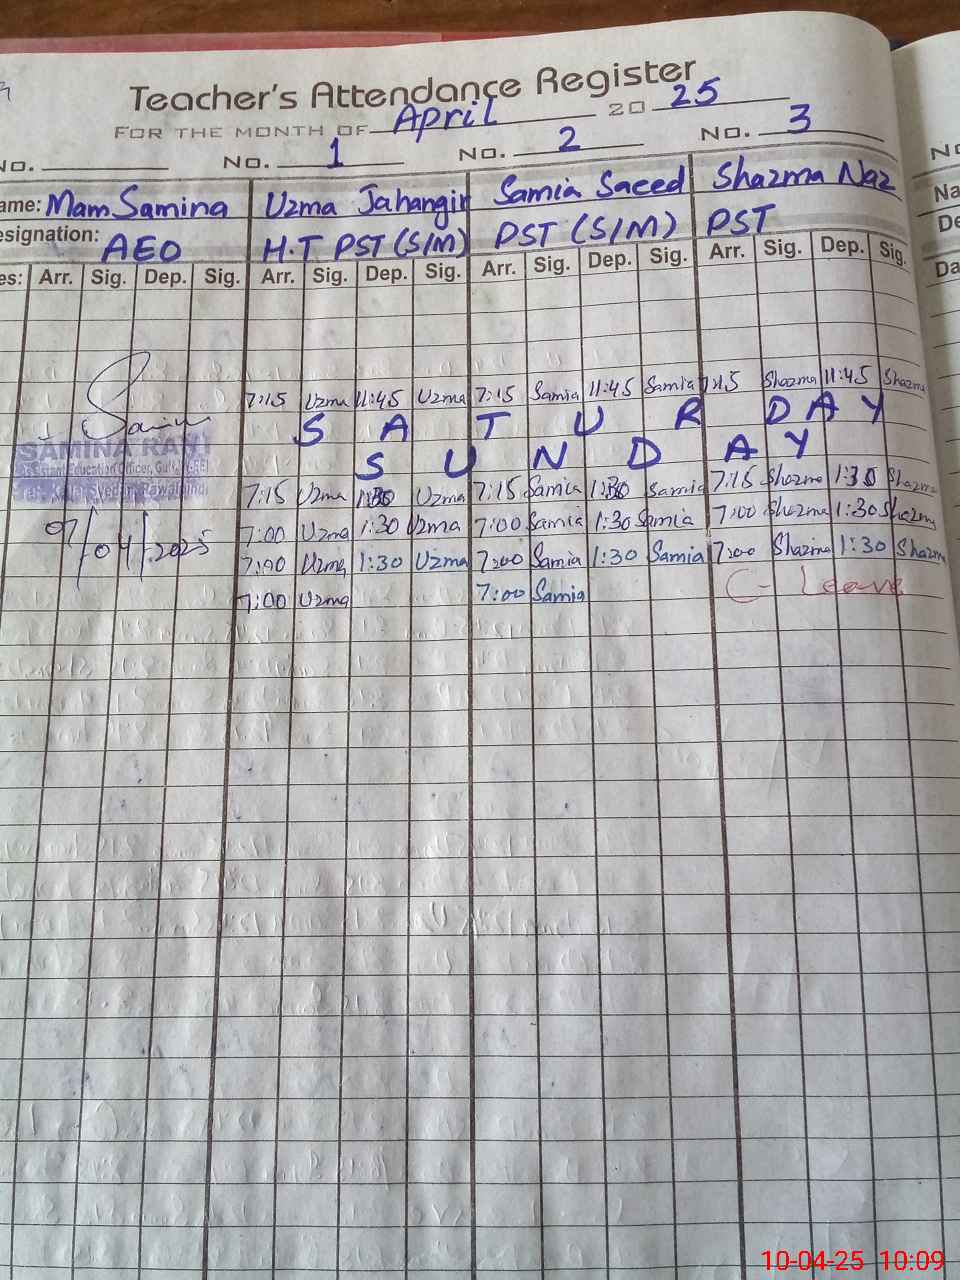 Teacher's Attendance Register
FOR THE MONTH OF April 20 25
No. No. 1 No. 2 No. 3
ame: Mam Samina Uzma Jahangir Samia Saeed Shazma Naz Na
esignation: AEO H.T PST (S/M) PST (S/M) PST De
es: Arr. Sig. Dep. Sig. Arr. Sig. Dep. Sig. Arr. Sig. Dep. Sig. Arr. Sig. Dep. Sig. Da
7:15 Uzma 11:45 Uzma 7:15 Samia 11:45 Samia 7:15 Shazma 11:45 Shazma
Samina
SATURDAY
SAMINA
Assistant Education Officer,
SUNDAY
Rawalpindi
7:15 Uzma 1:30 Uzma 7:15 Samia 1:30 Samia 7:15 Shazma 1:30 Shazma
09/04/.2025
7:00 Uzma 1:30 Uzma 7:00 Samia 1:30 Samia 7:00 Shazma 1:30 Shazma
7:00 Uzma 1:30 Uzma 7:00 Samia 1:30 Samia 7:00 Shazma 1:30 Shazma
7:00 Uzma 7:00 Samia C- Leave
10-04-25 10:09